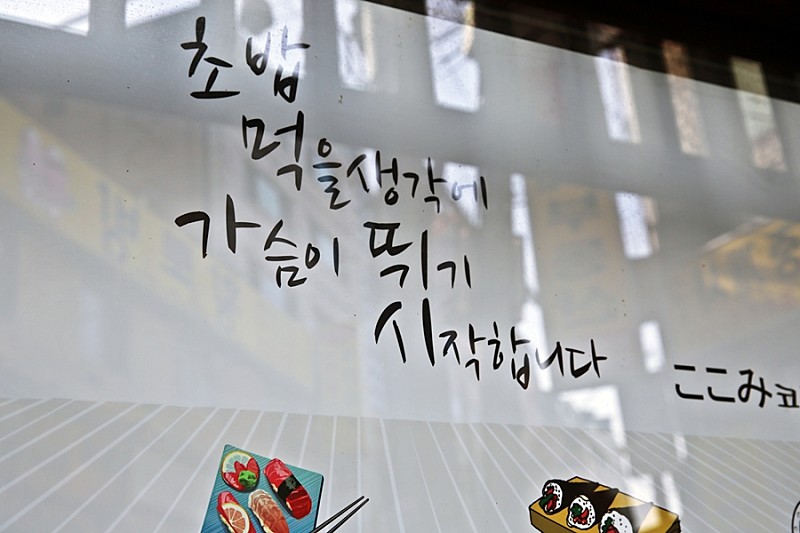 초밥
먹을생각에
가슴이 뛱기
시작합니다
ここみ코